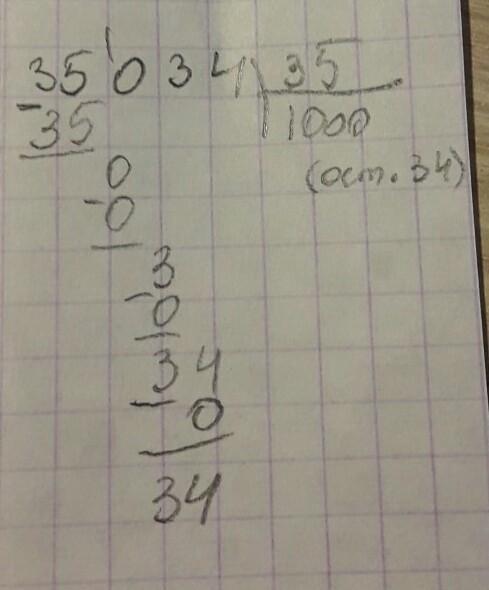 35'034 35
-35 1000
0 (ост. 34)
-0
3
-0
34
-0
34